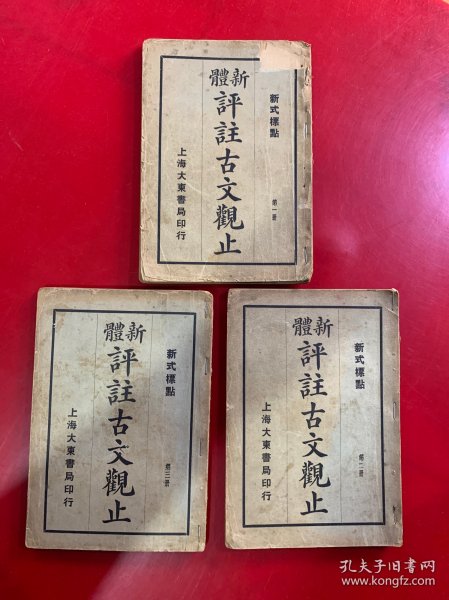 新式標點
新體
評註古文觀止
第一册
上海大東書局印行
新式標點
新體
評註古文觀止
第三册
上海大東書局印行
新式標點
新體
評註古文觀止
第二册
上海大東書局印行
孔夫子旧书网
www.kongfz.com